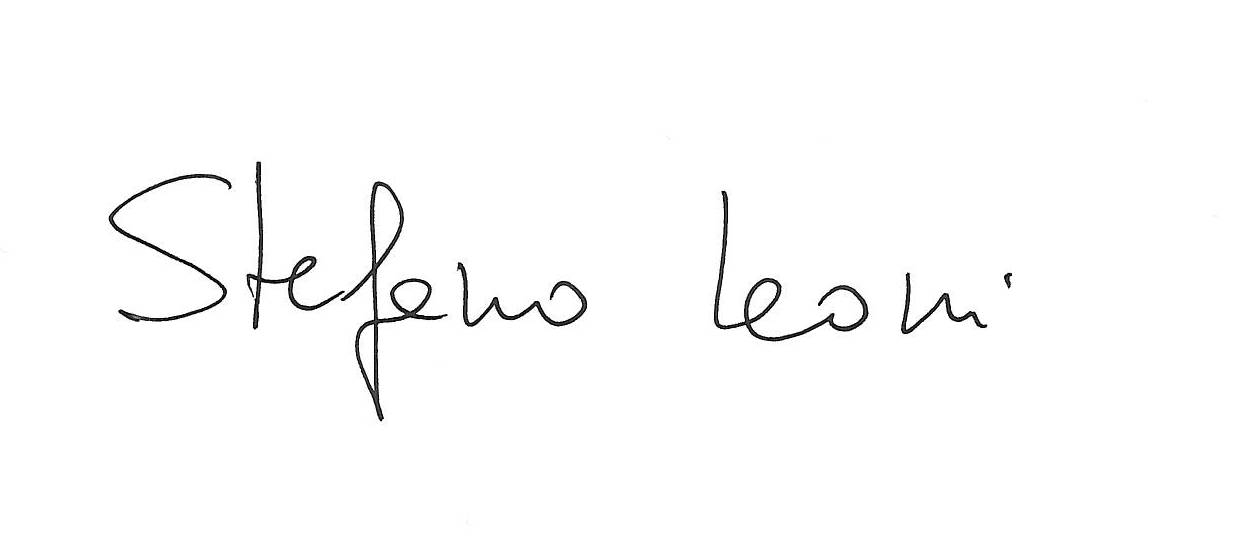 Stefano Leoni